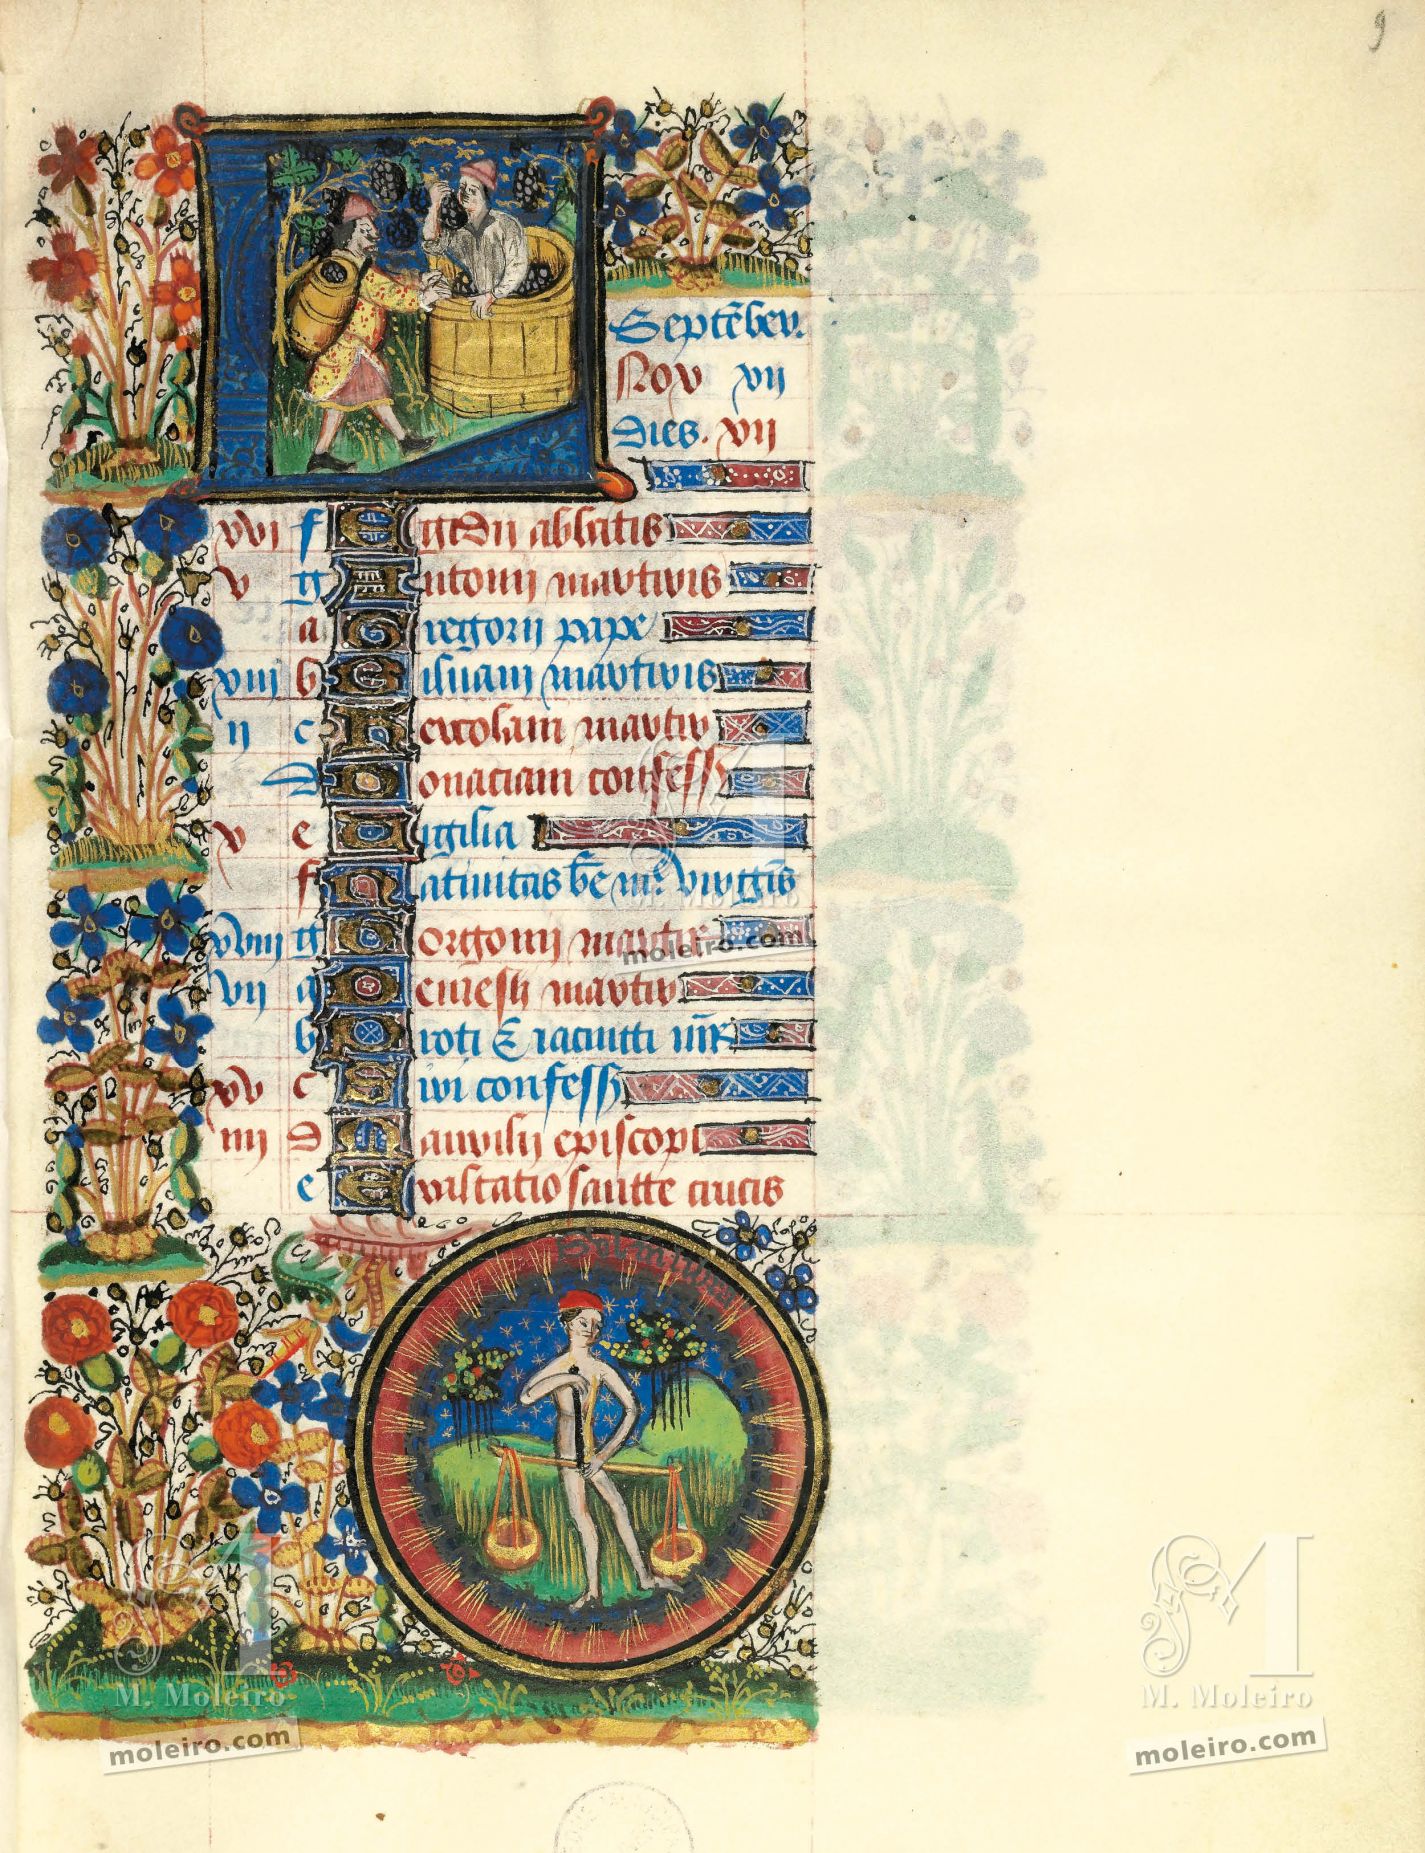 9
Septe͂ber.
Nox vii
Dies. vii
xvi f Egidii abbatis
v g Antonii martiris
a Gregorii pape
xiii b Siluani martiris
ii c Herculani martir
d Donatiani confess
x e Vigilia
f Natiuitas be m. virginis
xviii g Gorgonii martir
vii a
b Proti & iacincti mr
xv c Siri confess
iiii d Maurilii episcopi
e Exaltatio sancte crucis
Sol in libra
M. Moleiro
moleiro.com
M. Moleiro
moleiro.com
M. Moleiro
moleiro.com